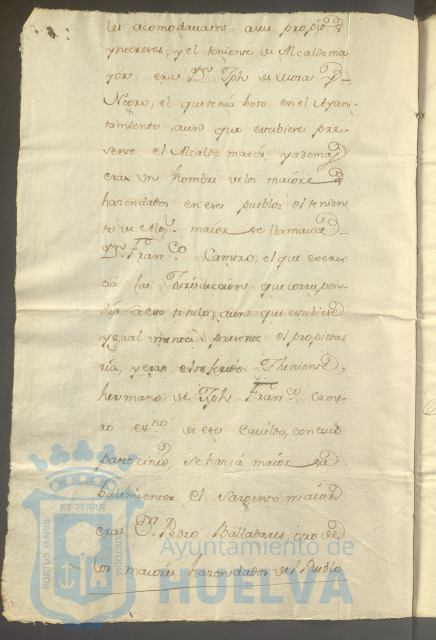 les acomodauan a sus propios
yntereses, y el teniente de Alcalde ma
yor era Dn. Jph. de Mora y
Negro, el que tenia boto en el Ayun-
tamiento, aun que estubiese pre-
sente el Alcalde maior y ademas
era un hombre de los maiores
hazendados en ese pueblo= el tenien
te de maior se llamaua
Dn. Franco. Camero, el que exer-
cia la Jurisdiccion que corespon-
dia a este titulo, aun que estubiese
ygual presente el propieta
rio, y era Theniente,
hermano de Jph. Franco. Came-
ro esno. de ese Cauildo, con cuio
patrocinio, se hazia maior su
balimiento= el Sargento maior
era Dn. Pedro Balladares, otro de
los maiores hazendados del Pueblo
PORTUS MARIS ET TERRÆ CUSTODIA
Ayuntamiento de
HUELVA